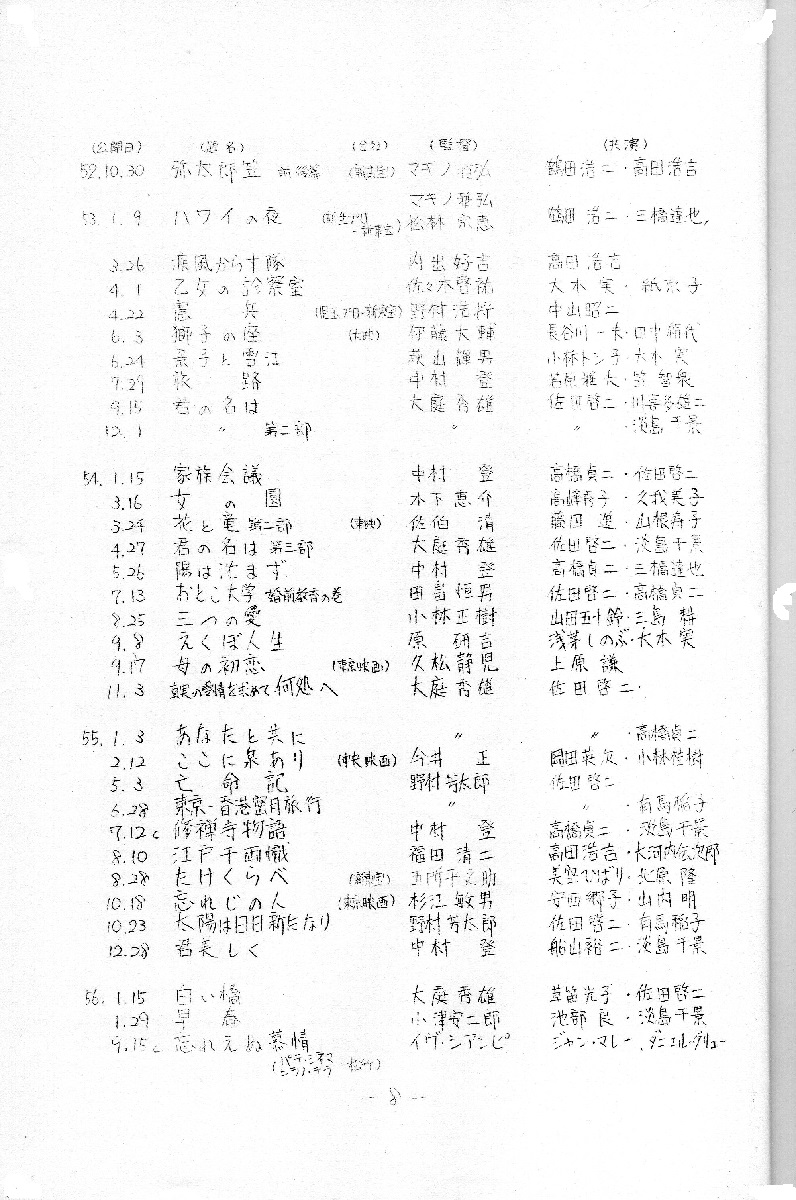 (公開日) (題名) (会社) (監督) (共演)
52.10.30 弥太郎笠 前後篇 (新生プロ) マキノ雅弘 鶴田浩二・高田浩吉
マキノ雅弘
53. 1. 9 ハワイの夜 松林宗恵 鶴田浩二・三橋達也,
3.26 疾風からす隊 内出好吉 高田浩吉
4. 1 乙女の診察室 佐々木啓祐 大木 実・紙京子
4.22 憲 兵 野村浩将 中山昭二
6. 3 獅子の座 (大映) 伊藤大輔 長谷川一夫・田中絹代
6.24 景子と雪江 萩山輝男 小林トシ子・大木 実
7.29 旅 路 中村 登 若原雅夫・笠 智衆
9.15 君の名は 大庭秀雄 佐田啓二・川喜多雄二
12. 1 〃 第二部 〃 〃 ・淡島千景
54. 1.15 家族会議 中村 登 高橋貞二・佐田啓二
3.16 女 の 園 木下恵介 高峰秀子・久我美子
3.24 花と竜 第二部 (東映) 佐伯 清 藤田 進・山根寿子
4.27 君の名は 第三部 大庭秀雄 佐田啓二・淡島千景
5.26 陽は沈まず 中村 登 高橋貞二・三橋達也
7.13 おとこ大学 婚前教育の巻 田畠恒男 佐田啓二・高橋貞二
8.25 三つの愛 小林正樹 山田五十鈴・三島 耕
9. 8 えくぼ人生 原 研吉 浅茅しのぶ・大木 実
9.17 母の初恋 (東京映画) 久松静児 上原 謙
11. 3 真実の愛情を求めて 何処へ 大庭秀雄 佐田啓二・
55. 1. 3 あなたと共に 〃 〃 ・高橋貞二
2.12 ここに泉あり (中央映画) 今井 正 岡田英次・小林桂樹
5. 3 亡 命 記 野村芳太郎 佐田啓二
6.28 東京-香港蜜月旅行 〃 〃 ・有馬稲子
7.12c 修禅寺物語 中村 登 高橋貞二・淡島千景
8.10 江戸千両幟 福田清二 高田浩吉・大河内伝次郎
8.28 たけくらべ (新芸プロ) 五所平之助 美空ひばり・北原 隆
10.18 忘れじの人 (東京映画) 杉江敏男 安西郷子・山内 明
10.23 太陽は日日新たなり 野村芳太郎 佐田啓二・有馬稲子
12.28 君美しく 中村 登 船山裕二・淡島千景
56. 1.15 白い橋 大庭秀雄 草笛光子・佐田啓二
1.29 早 春 小津安二郎 池部 良・淡島千景
9.15c 忘れえぬ慕情 イヴ・シアンピ ジャン・マレー、ダニエル・ダリュー
- 8 -